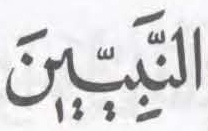 النَّبِيّٖينَ